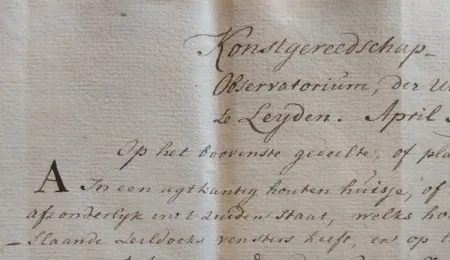 Konstgereedschap-
Observatorium, der
te Leyden. April
Op het boovenste gedeelte, of pla
A In een agtkantig houten huisje, of
afzonderlyk in 't Zuiden Staat, welks ho
-Slaande Zeildocks vensters heeft, en op t